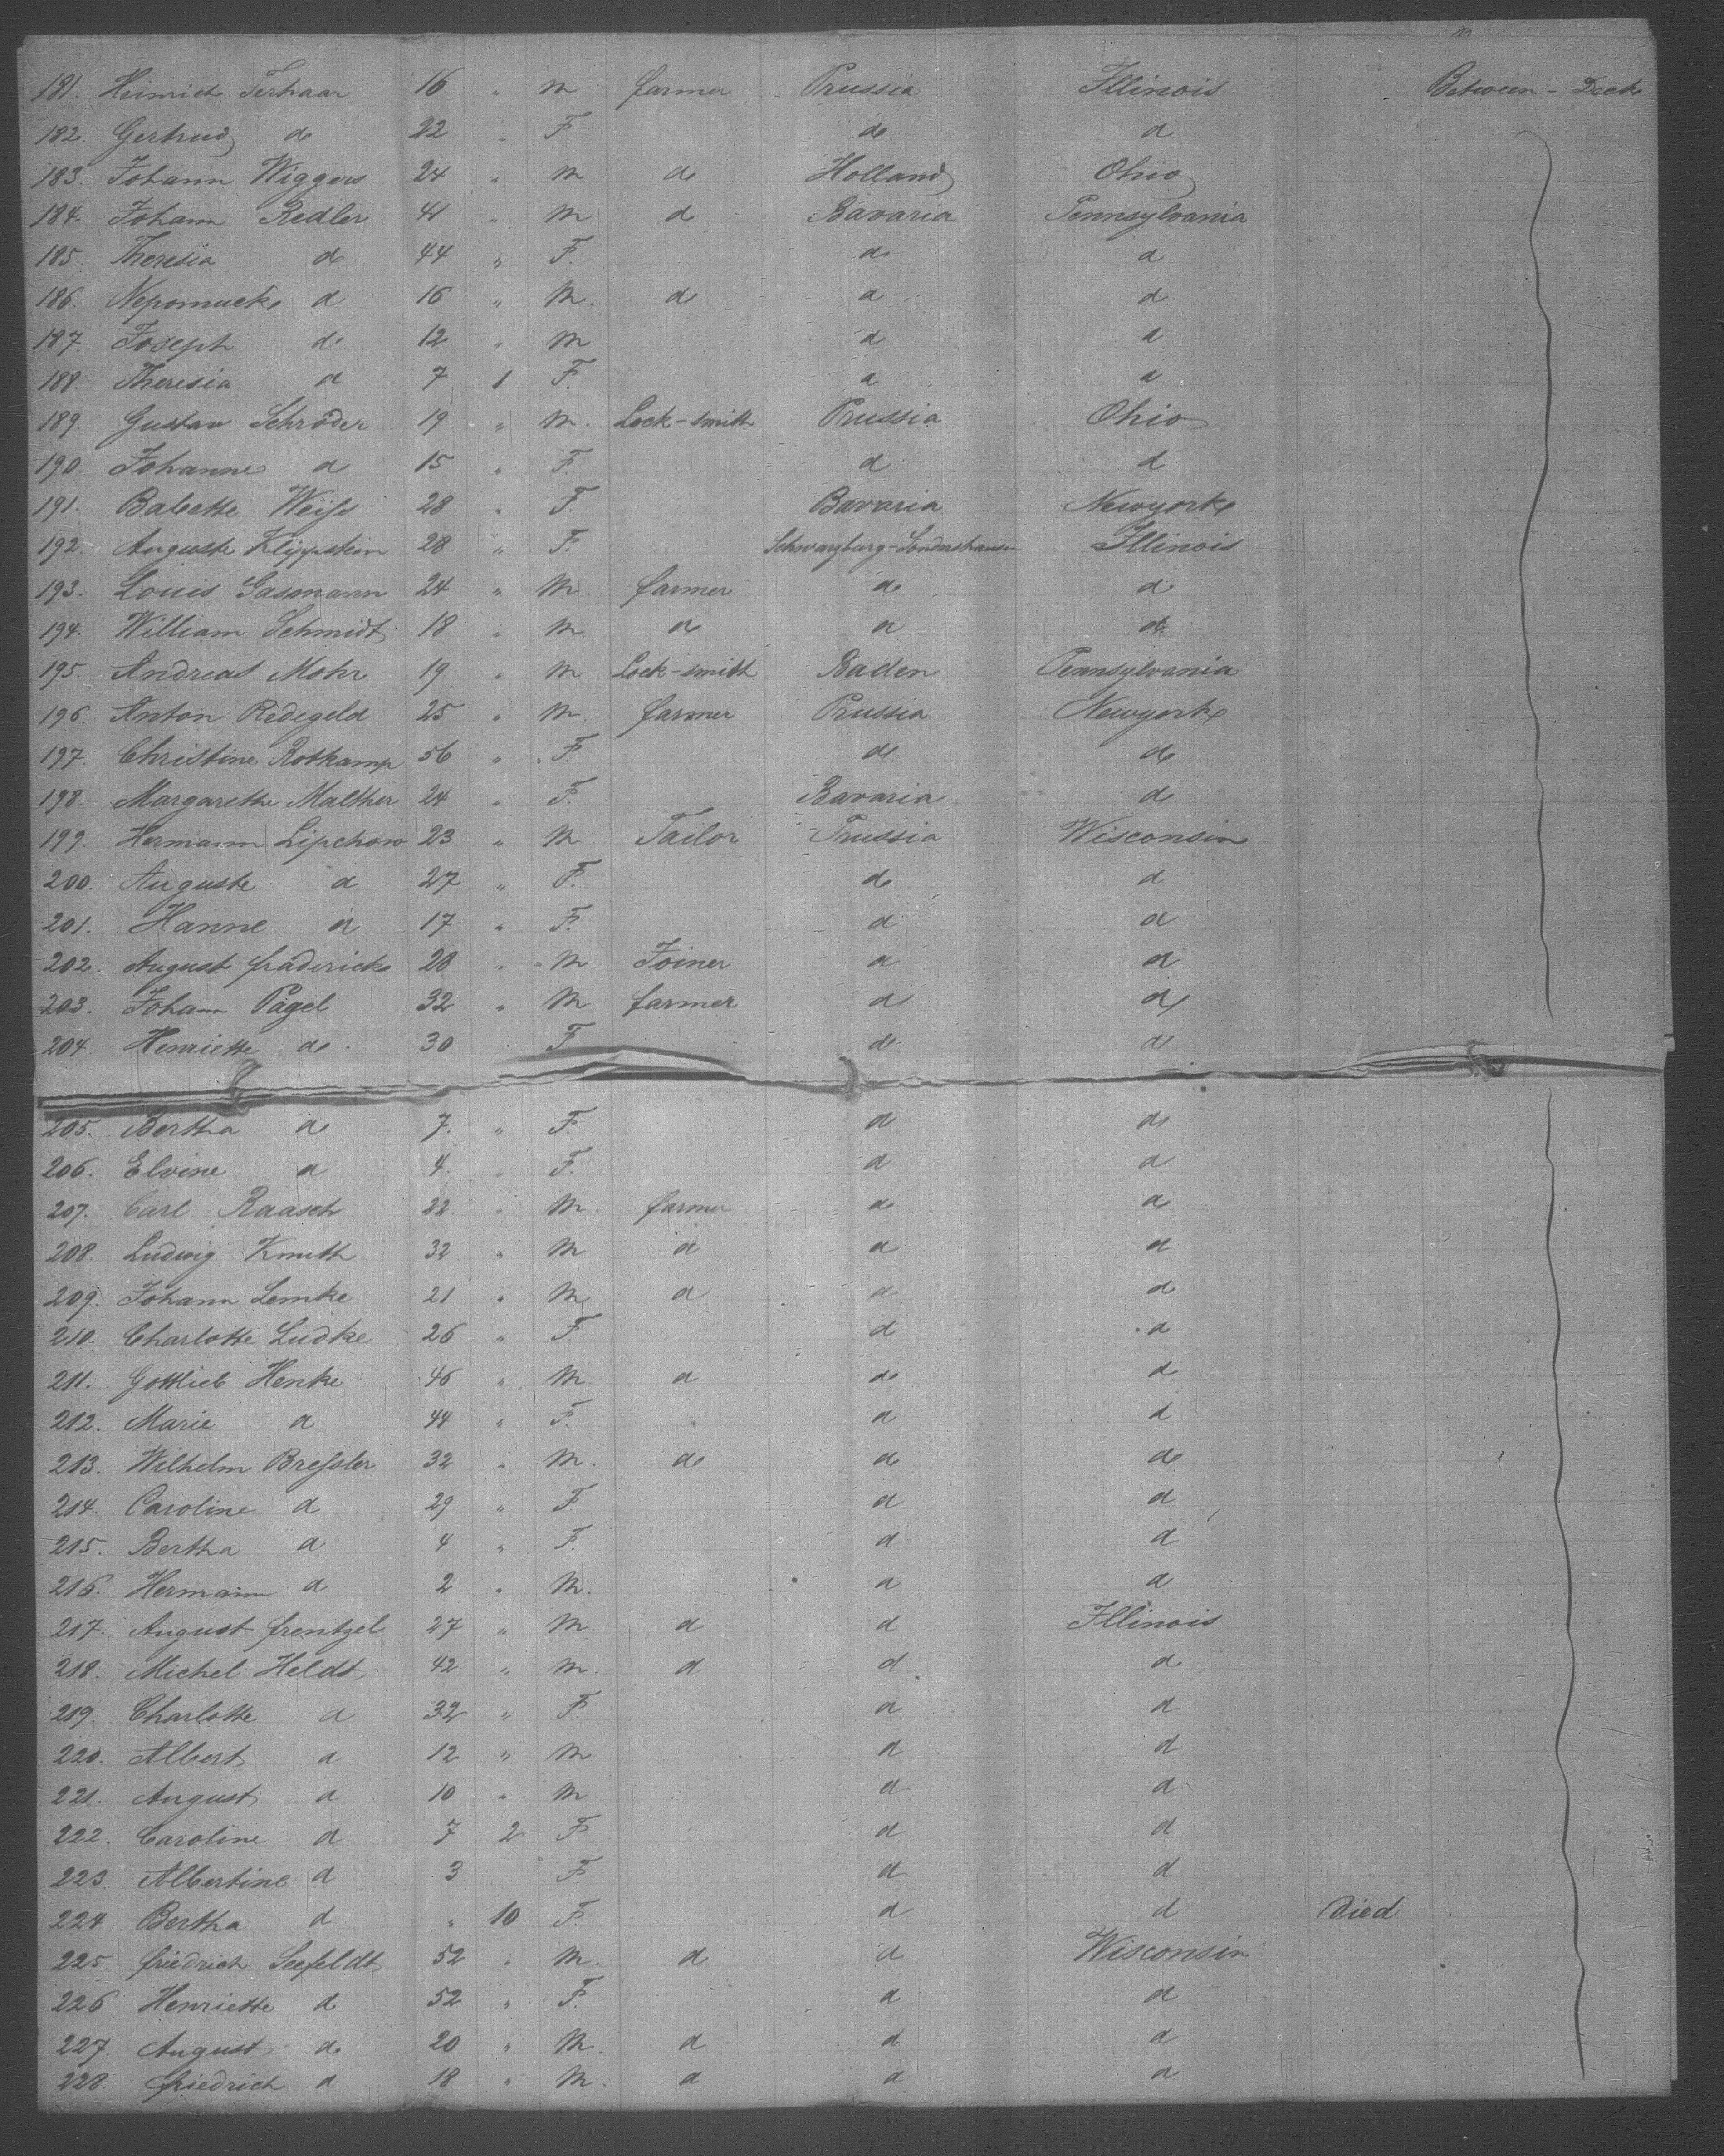 181. Heinrich Terhaar 16 " m farmer Prussia Illinois Between-Deck
182. Gertrud do 22 " F. do d
183. Johann Wiggers 24 " m do Holland Ohio
184. Johann Redler 41 " m d Bavaria Pennsylvania
185. Theresia do 44 " F. d d
186. Nepomuck d 16 " m. d d d
187. Joseph do 12 " m d d
188. Theresia d 7 1 F. d d
189. Gustav Schröder 19 " m. Lock-smith Prussia Ohio
190. Johanne d 15 " F. d d
191. Babette Weiß 28 " F Bavaria Newyork
192. Auguste Klippstein 28 " F. Schwarzburg-Sondershausen Illinois
193. Louis Gasmann 24 " m. farmer do d
194. William Schmidt 18 " m d d do
195. Andreas Mohr 19 " m Lock-smith Baden Pennsylvania
196. Anton Redegeld 25 " m. farmer Prussia Newyork
197. Christine Rotkamp 56 " F. do do
198. Margarethe Malther 24 " F. Bavaria d
199. Hermann Lipchow 23 " m. Tailor Prussia Wisconsin
200. Auguste d 27 " F. do d
201. Hanne d 17 " F. d d
202. August fräderick 28 " m Joiner d d
203. Johann Pagel 32 " m farmer d d
204. Henriette do 30 " F do do
205. Bertha do 7. " F. d d
206. Elvine d 4. " F. d d
207. Carl Raasch 22. " m. farmer d d
208. Ludwig Knuth 32 " m d d d
209. Johann Lemke 21 " m d d d
210. Charlotte Ludke 26 " F d d
211. Gottlieb Henke 46 " m d d d
212. Marie d 44 " F. d d
213. Wilhelm Breßler 32 " m. do do do
214. Caroline d 29 " F. d d
215. Bertha d 4 " F. d d
216. Hermann d 2 " m. d d
217. August frentzel 27 " m. d d Illinois
218. Michel Heldt 42 " m. d d d
219. Charlotte d 32 " F. d d
220. Albert d 12 " m d d
221. August d 10 " m d d
222. Caroline d 7 2 F d d
223. Albertine d 3 F. d d
224 Bertha d " 10 F. d d Died
225. friedrich Seefeldt 52 " m. d d Wisconsin
226 Henriette d 52 " F. d d
227. August d 20 " m. d d d
228. friedrich d 18 " m. d d d